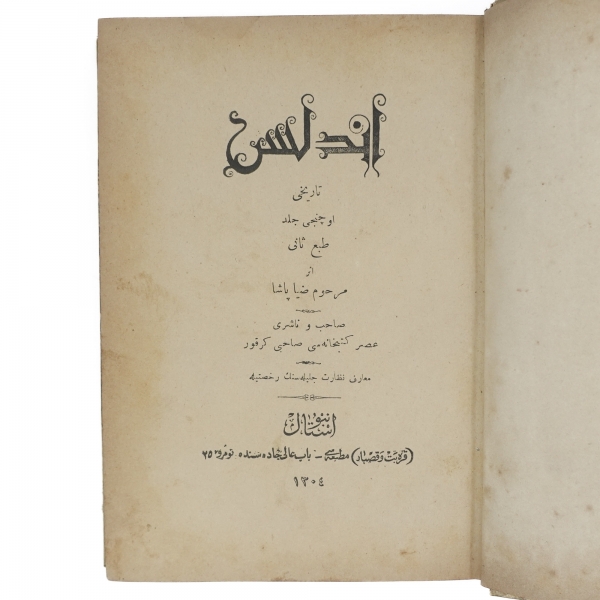 اندلس
تاریخی
اوچنجی جلد
طبع ثانی
اثر
مرحوم ضیا پاشا
صاحب و ناشری
عصر کتبخانه‌سی صاحبی کرقور
معارف نظارت جلیله‌سنك رخصتیله
استانبول
(قره‌بت و قصبار) مطبعه‌سی – باب عالی جاده‌سنده نومرو ٢٥
١٣٠٤